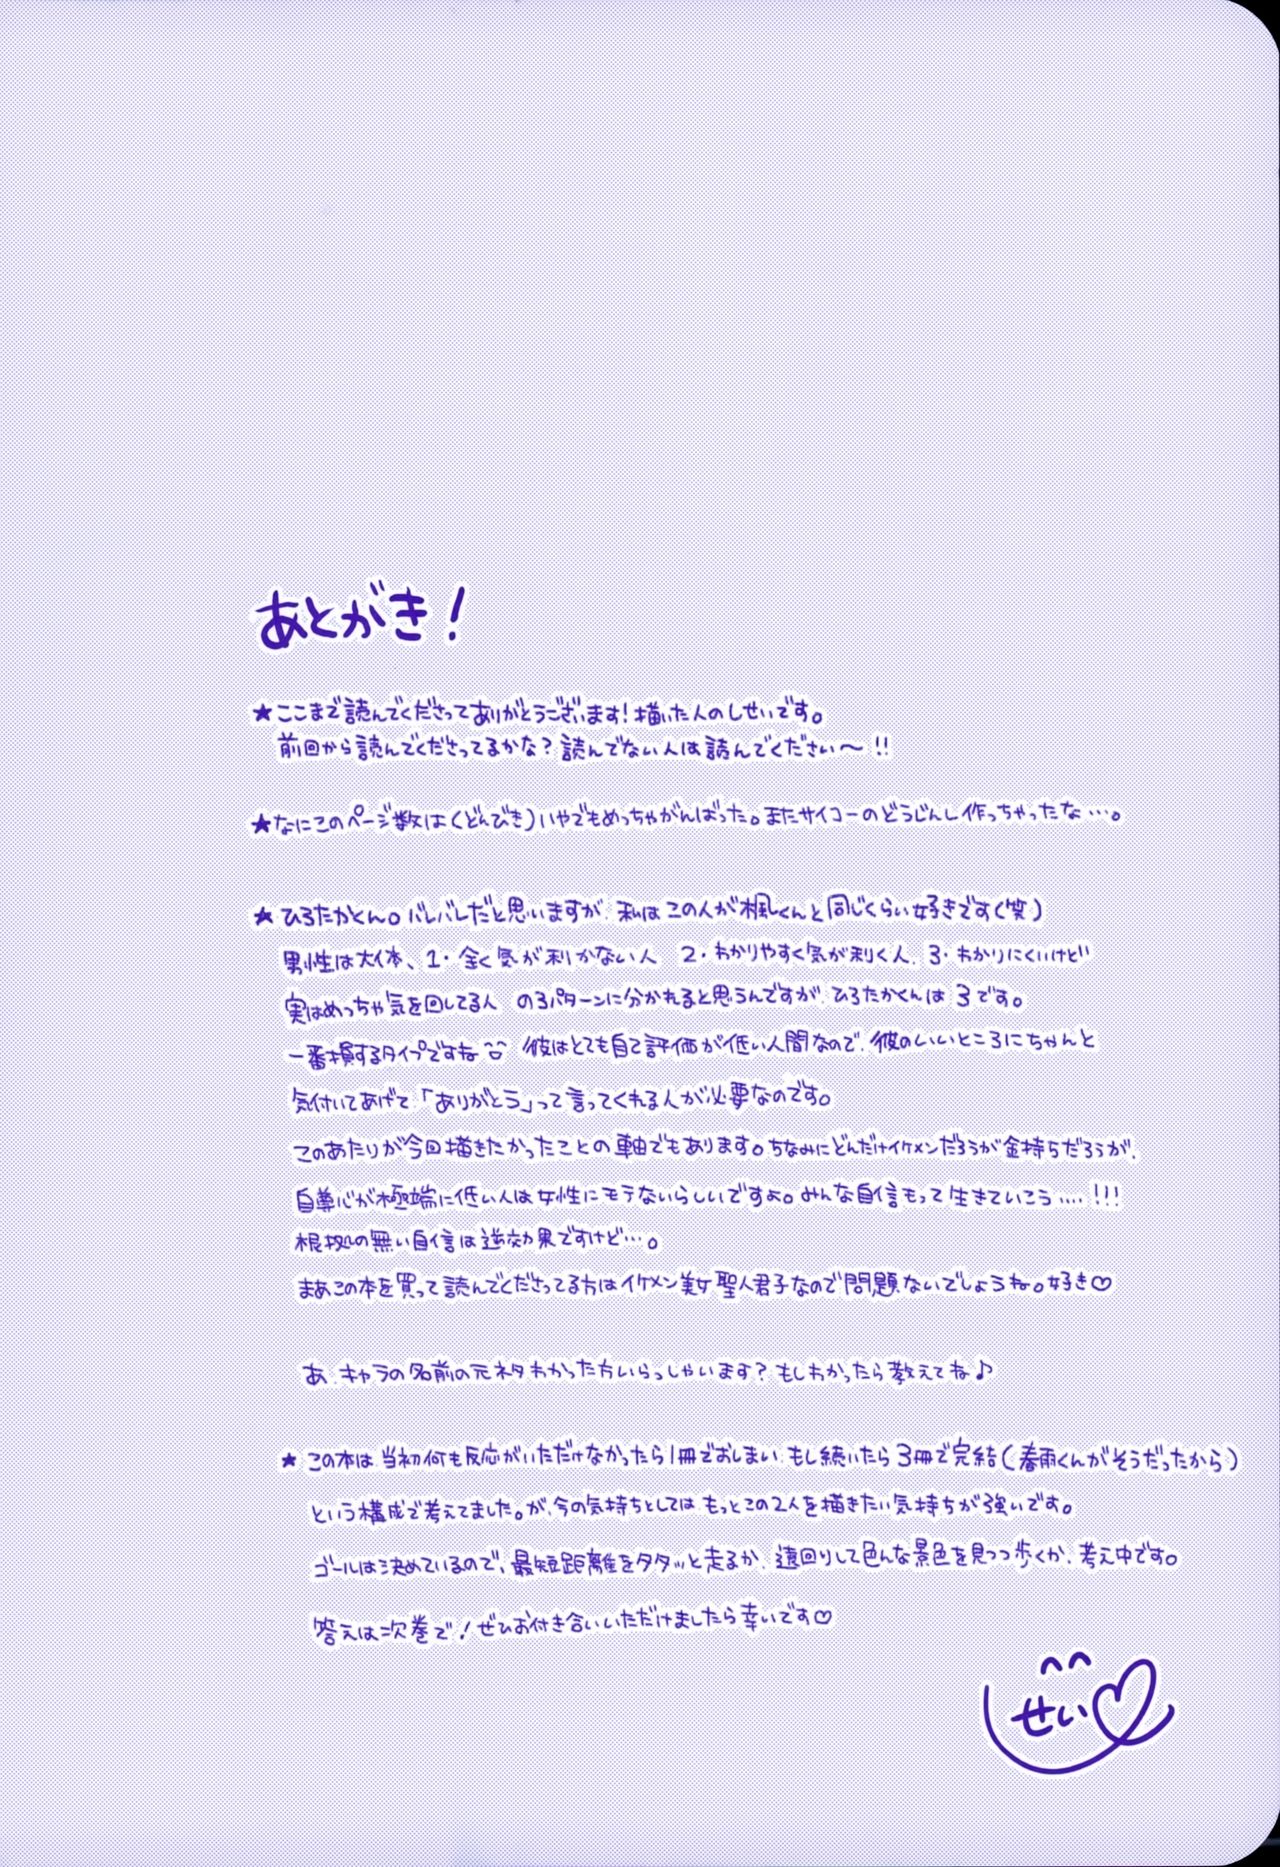 あとがき!
★ここまで読んでくださってありがとうございます!描いた人のしせいです。
前回から読んでくださってるかな?読んでない人は読んでください〜!!
★なにこのページ数は(どんびき)いやでもめっちゃがんばった。またサイコーのどうじんし作っちゃったな…。
★ひろたかくん。バレバレだと思いますが、私はこの人が楓くんと同じくらい好きです(笑)
男性は大体、1・全く気が利かない人 2・わかりやすく気が利く人、3・わかりにくいけど
実はめっちゃ気を回してる人 の3パターンに分かれると思うんですが、ひろたかくんは3です。
一番損するタイプですね 彼はとても自己評価が低い人間なので、彼のいいところにちゃんと
気付いてあげて、「ありがとう」って言ってくれる人が必要なのです。
このあたりが今回描きたかったことの軸でもあります。ちなみにどんだけイケメンだろうが金持ちだろうが、
自尊心が極端に低い人は女性にモテないらしいですよ。みんな自信もって生きていこう....!!!
根拠の無い自信は逆効果ですけど…。
まあこの本を買って読んでくださってる方はイケメン美女聖人君子なので問題ないでしょうね。好き♡
あ、キャラの名前の元ネタわかった方いらっしゃいます?もしわかったら教えてね♪
★この本は、当初何も反応がいただけなかったら1冊でおしまい、もし続いたら3冊で完結(春雨くんがそうだったから)
という構成で考えてました。が、今の気持ちとしては、もっとこの2人を描きたい気持ちが強いです。
ゴールは決めているので、最短距離をタタッと走るか、遠回りして色んな景色を見つつ歩くか、考え中です。
答えは次巻で!ぜひお付き合いいただけましたら幸いです♡
せい♡